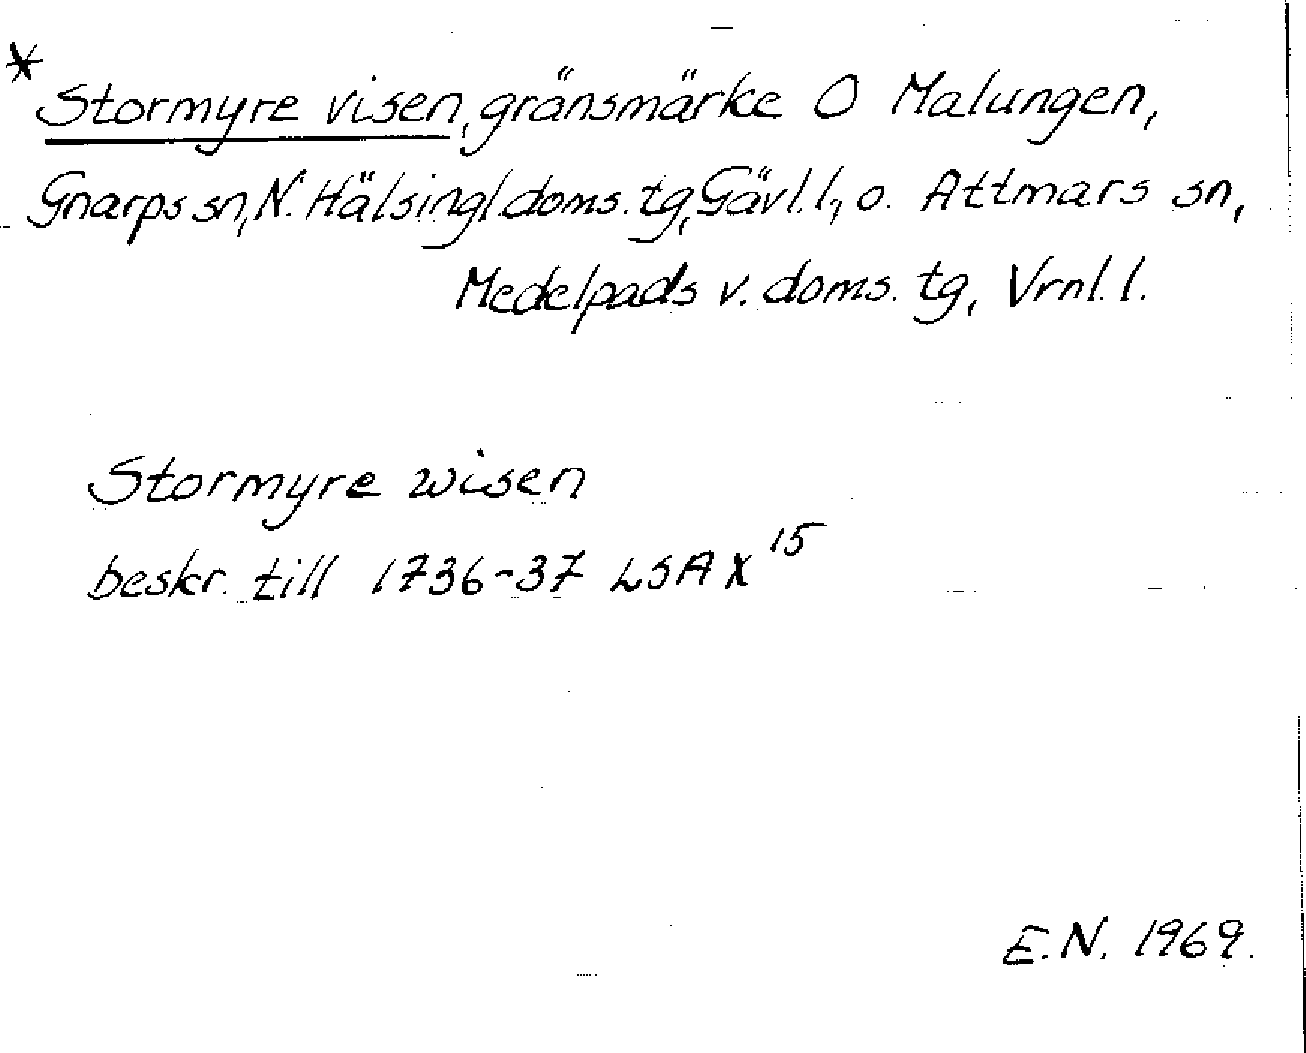 * Stormyre visen, gränsmärke O Malungen,
Gnarps sn, N. Hälsingl. doms. tg, Gävl. l., o. Attmars sn,
Medelpads v. doms. tg, Vrnl. l.
Stormyre wisen
beskr. till 1736-37 LSA X¹⁵
E.N. 1969.